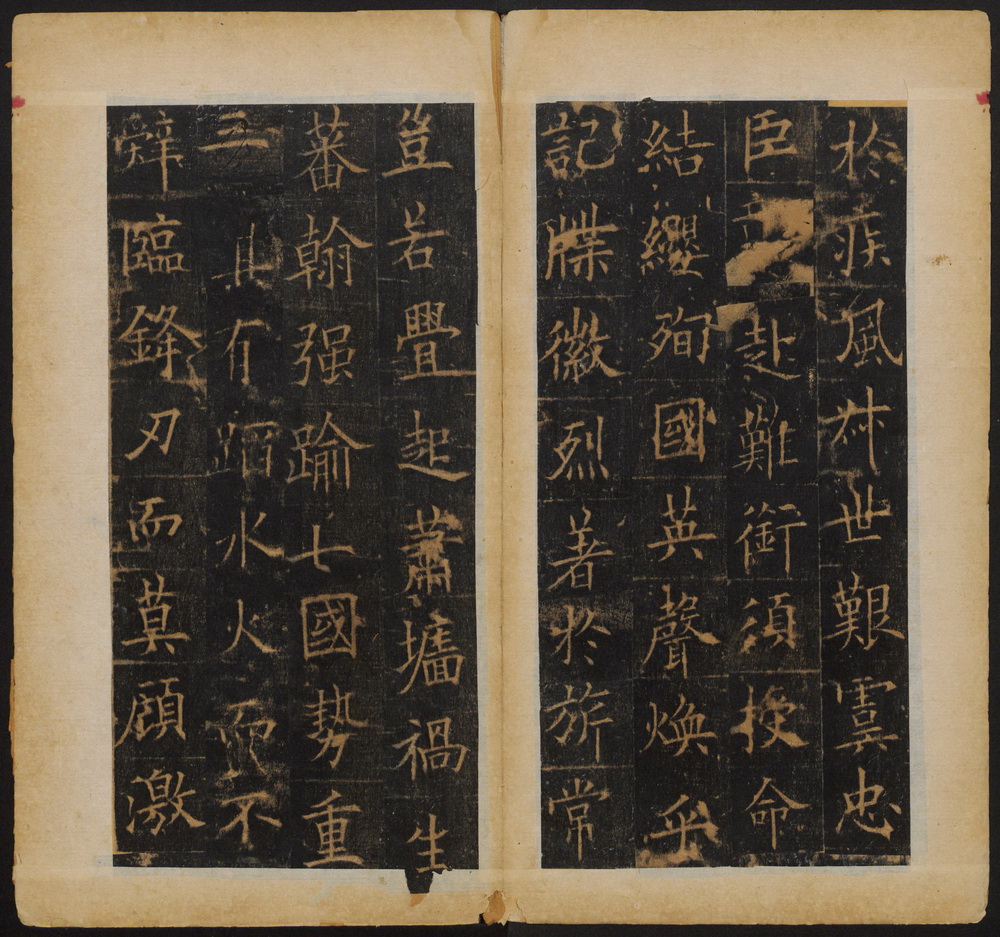 於疾風叔世艱虞忠
臣赴難銜須授命
結纓殉國英聲煥乎
記牒徽烈著於旂常
豈若舋起蕭墻禍生
蕃翰强踰七國勢重
三其有蹈水火而不
辭臨鋒刃而莫顧激